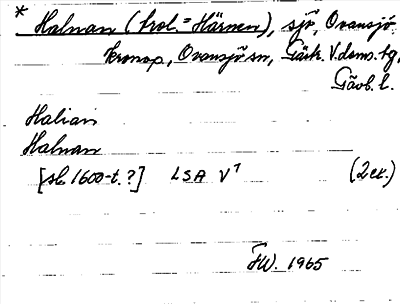 * Halnan (trol. = Härnen), sjö, Ovansjö
kronop, Ovansjö sn, Gästr. V. doms. tg,
Gävb. l.
Halian
Halnan
[sl. 1600-t.?] LSA V¹ (2 ex.)
FW. 1965